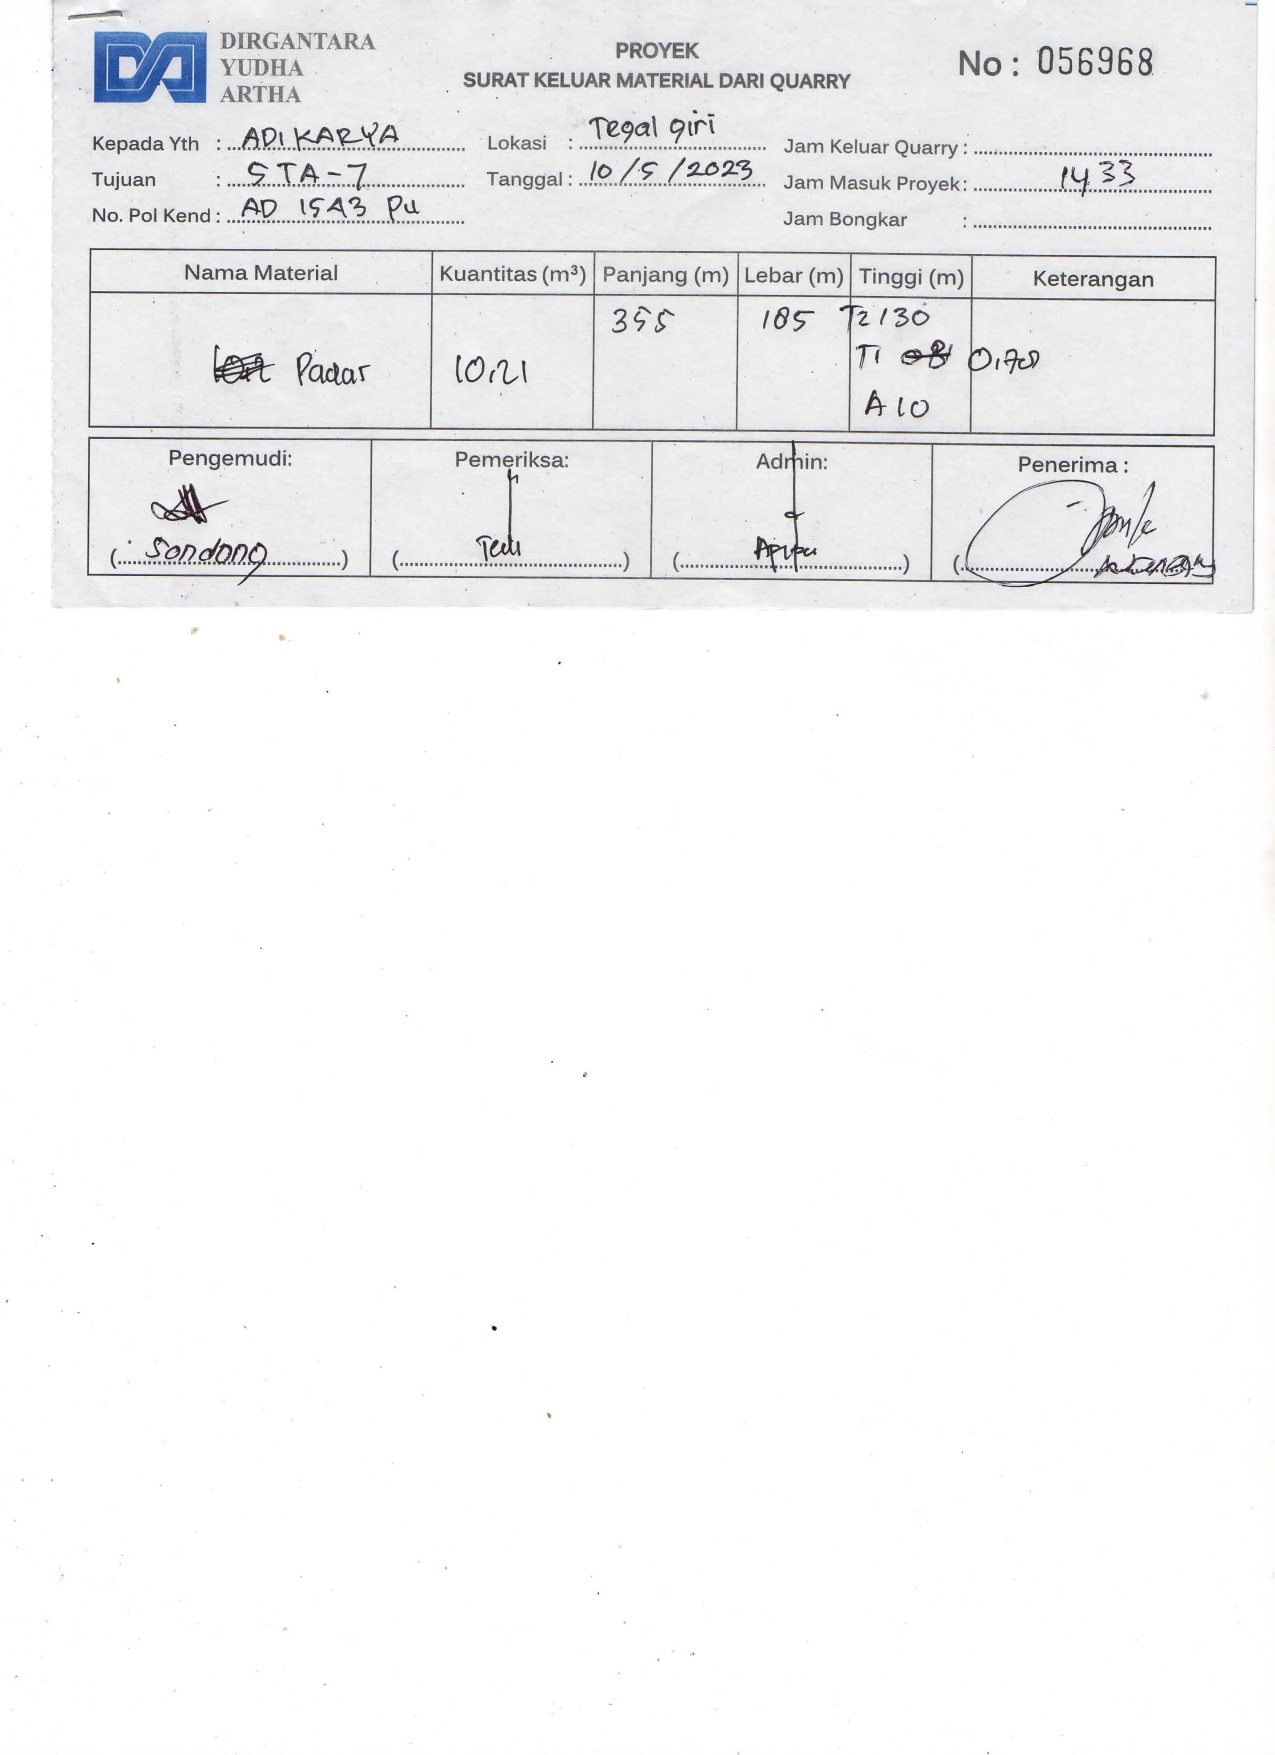 DIRGANTARA
YUDHA
ARTHA
PROYEK
SURAT KELUAR MATERIAL DARI QUARRY
No : 056968
Kepada Yth : ADI KARYA
Tujuan : STA-7
No. Pol Kend : AD 15A3 PU
Lokasi : Tegal giri
Tanggal : 10/5/2023
Jam Keluar Quarry :
Jam Masuk Proyek : 14 33
Jam Bongkar :
Nama Material Kuantitas (m³) Panjang (m) Lebar (m) Tinggi (m) Keterangan
355 185 T2 130
Padar 10,21 T1
A 10
Pengemudi: Pemeriksa: Admin: Penerima :
(Sondong) (Tedi) ( ) ( )